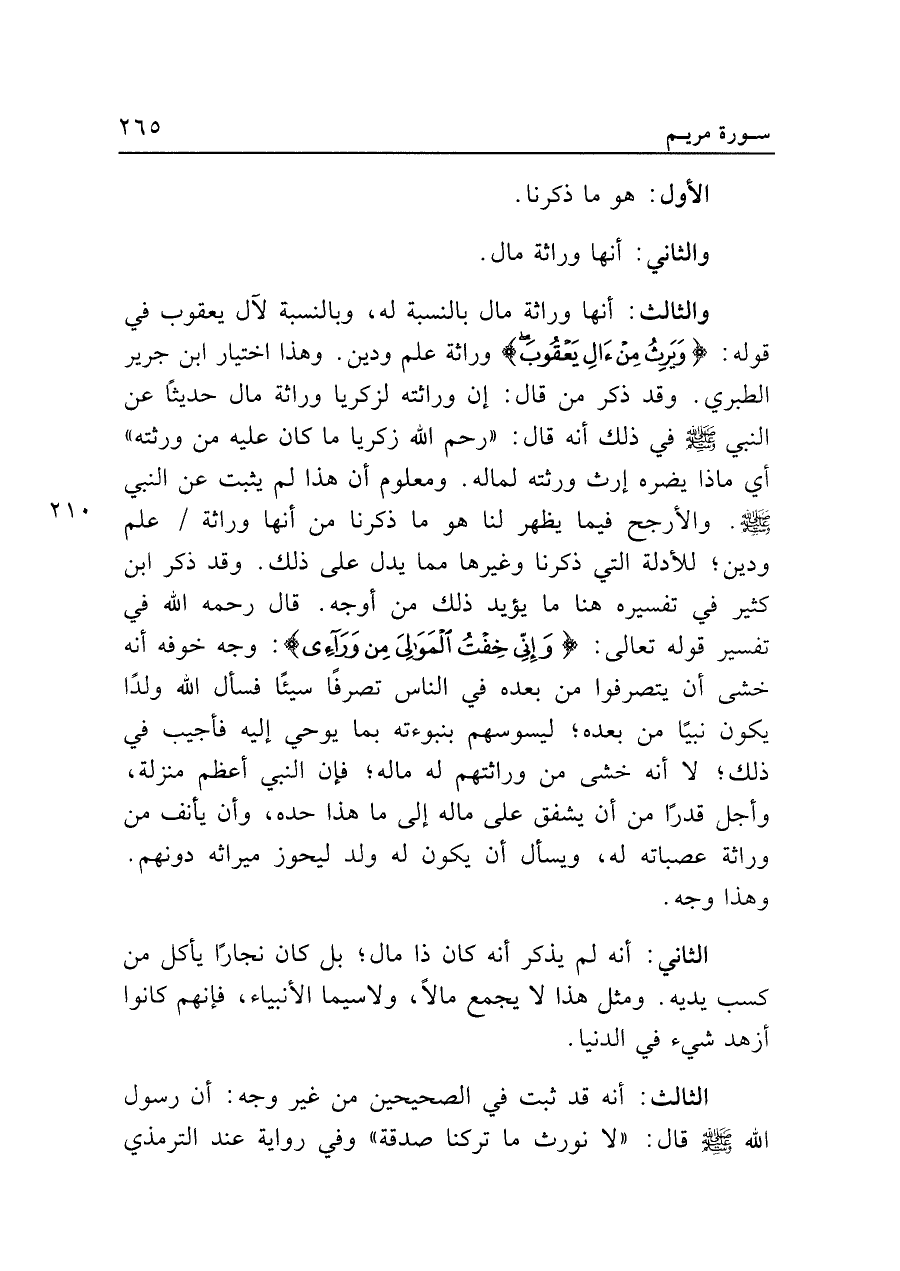 سورة مريم ٢٦٥
الأول: هو ما ذكرنا.
والثاني: أنها وراثة مال.
والثالث: أنها وراثة مال بالنسبة له، وبالنسبة لآل يعقوب في
قوله: ﴿وَيَرِثُ مِنْ ءَالِ يَعْقُوبَۖ﴾ وراثة علم ودين. وهذا اختيار ابن جرير
الطبري. وقد ذكر من قال: إن وراثته لزكريا وراثة مال حديثًا عن
النبي ﷺ في ذلك أنه قال: «رحم الله زكريا ما كان عليه من ورثته»
أي ماذا يضره إرث ورثته لماله. ومعلوم أن هذا لم يثبت عن النبي
ﷺ. والأرجح فيما يظهر لنا هو ما ذكرنا من أنها وراثة / علم ٢١٠
ودين؛ للأدلة التي ذكرنا وغيرها مما يدل على ذلك. وقد ذكر ابن
كثير في تفسيره هنا ما يؤيد ذلك من أوجه. قال رحمه الله في
تفسير قوله تعالى: ﴿وَإِنِّي خِفْتُ ٱلْمَوَٰلِيَ مِن وَرَآءِى﴾: وجه خوفه أنه
خشى أن يتصرفوا من بعده في الناس تصرفًا سيئًا فسأل الله ولدًا
يكون نبيًا من بعده؛ ليسوسهم بنبوءته بما يوحي إليه فأجيب في
ذلك؛ لا أنه خشى من وراثتهم له ماله؛ فإن النبي أعظم منزلة،
وأجل قدرًا من أن يشفق على ماله إلى ما هذا حده، وأن يأنف من
وراثة عصباته له، ويسأل أن يكون له ولد ليحوز ميراثه دونهم.
وهذا وجه.
الثاني: أنه لم يذكر أنه كان ذا مال؛ بل كان نجارًا يأكل من
كسب يديه. ومثل هذا لا يجمع مالاً، ولاسيما الأنبياء، فإنهم كانوا
أزهد شيء في الدنيا.
الثالث: أنه قد ثبت في الصحيحين من غير وجه: أن رسول
الله ﷺ قال: «لا نورث ما تركنا صدقة» وفي رواية عند الترمذي